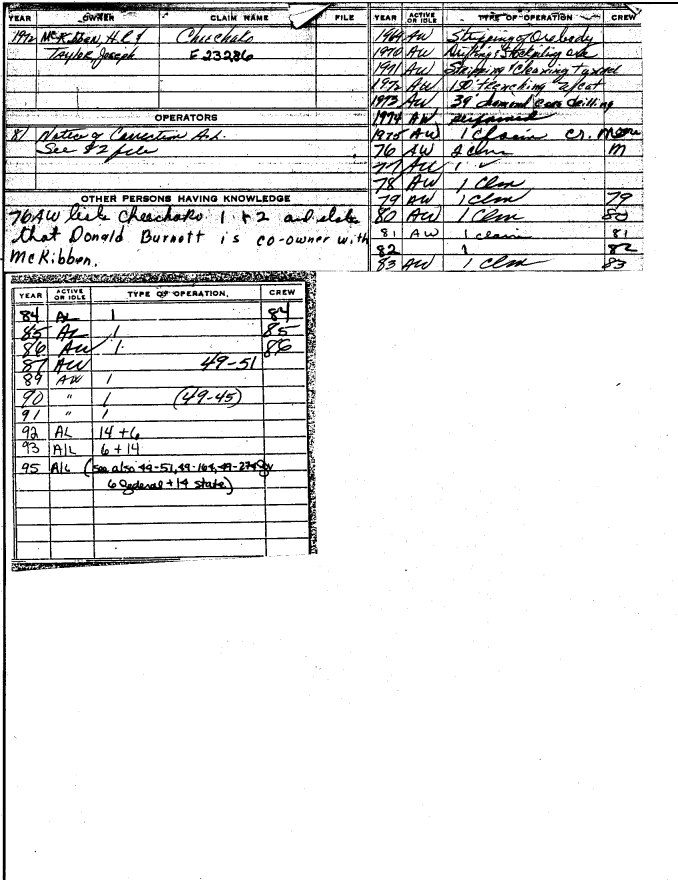 YEAR OWNER CLAIM NAME FILE
1972 McKibben, H.L. & Cheechako
Taylor Joseph F 23236
OPERATORS
81 Notice of Correction A.L.
See 82 file
OTHER PERSONS HAVING KNOWLEDGE
76 AW lists Cheechako 1 + 2 and states
that Donald Burnett is co-owner with
McKibben.
YEAR ACTIVE OR IDLE TYPE OF OPERATION CREW
1969 AW Stripping of Orebody
1970 AW Drifting & Stockpiling ore
1971 AW Stripping & Clearing
1972 AW 150' trenching w/cat
1973 AW 39' diamond core drilling
1974 AW performed
1975 AW 1 Claim
76 AW 2 clm M
77 AW 1 ✓
78 AW 1 Clm
79 AW 1 Clm 79
80 AW 1 Clm 80
81 AW 1 claim 81
82 1 82
83 AW 1 Clm 83
YEAR ACTIVE OR IDLE TYPE OF OPERATION, CREW
84 AL 1 84
85 AL 1 85
86 AW 1 86
87 AW 49-51
89 AW 1
90 " 1 (49-45)
91 " 1
92 AL 14 + 6
93 A/L 6 + 14
95 A/L (see also 49-51, 49-164,
6 federal + 14 state)